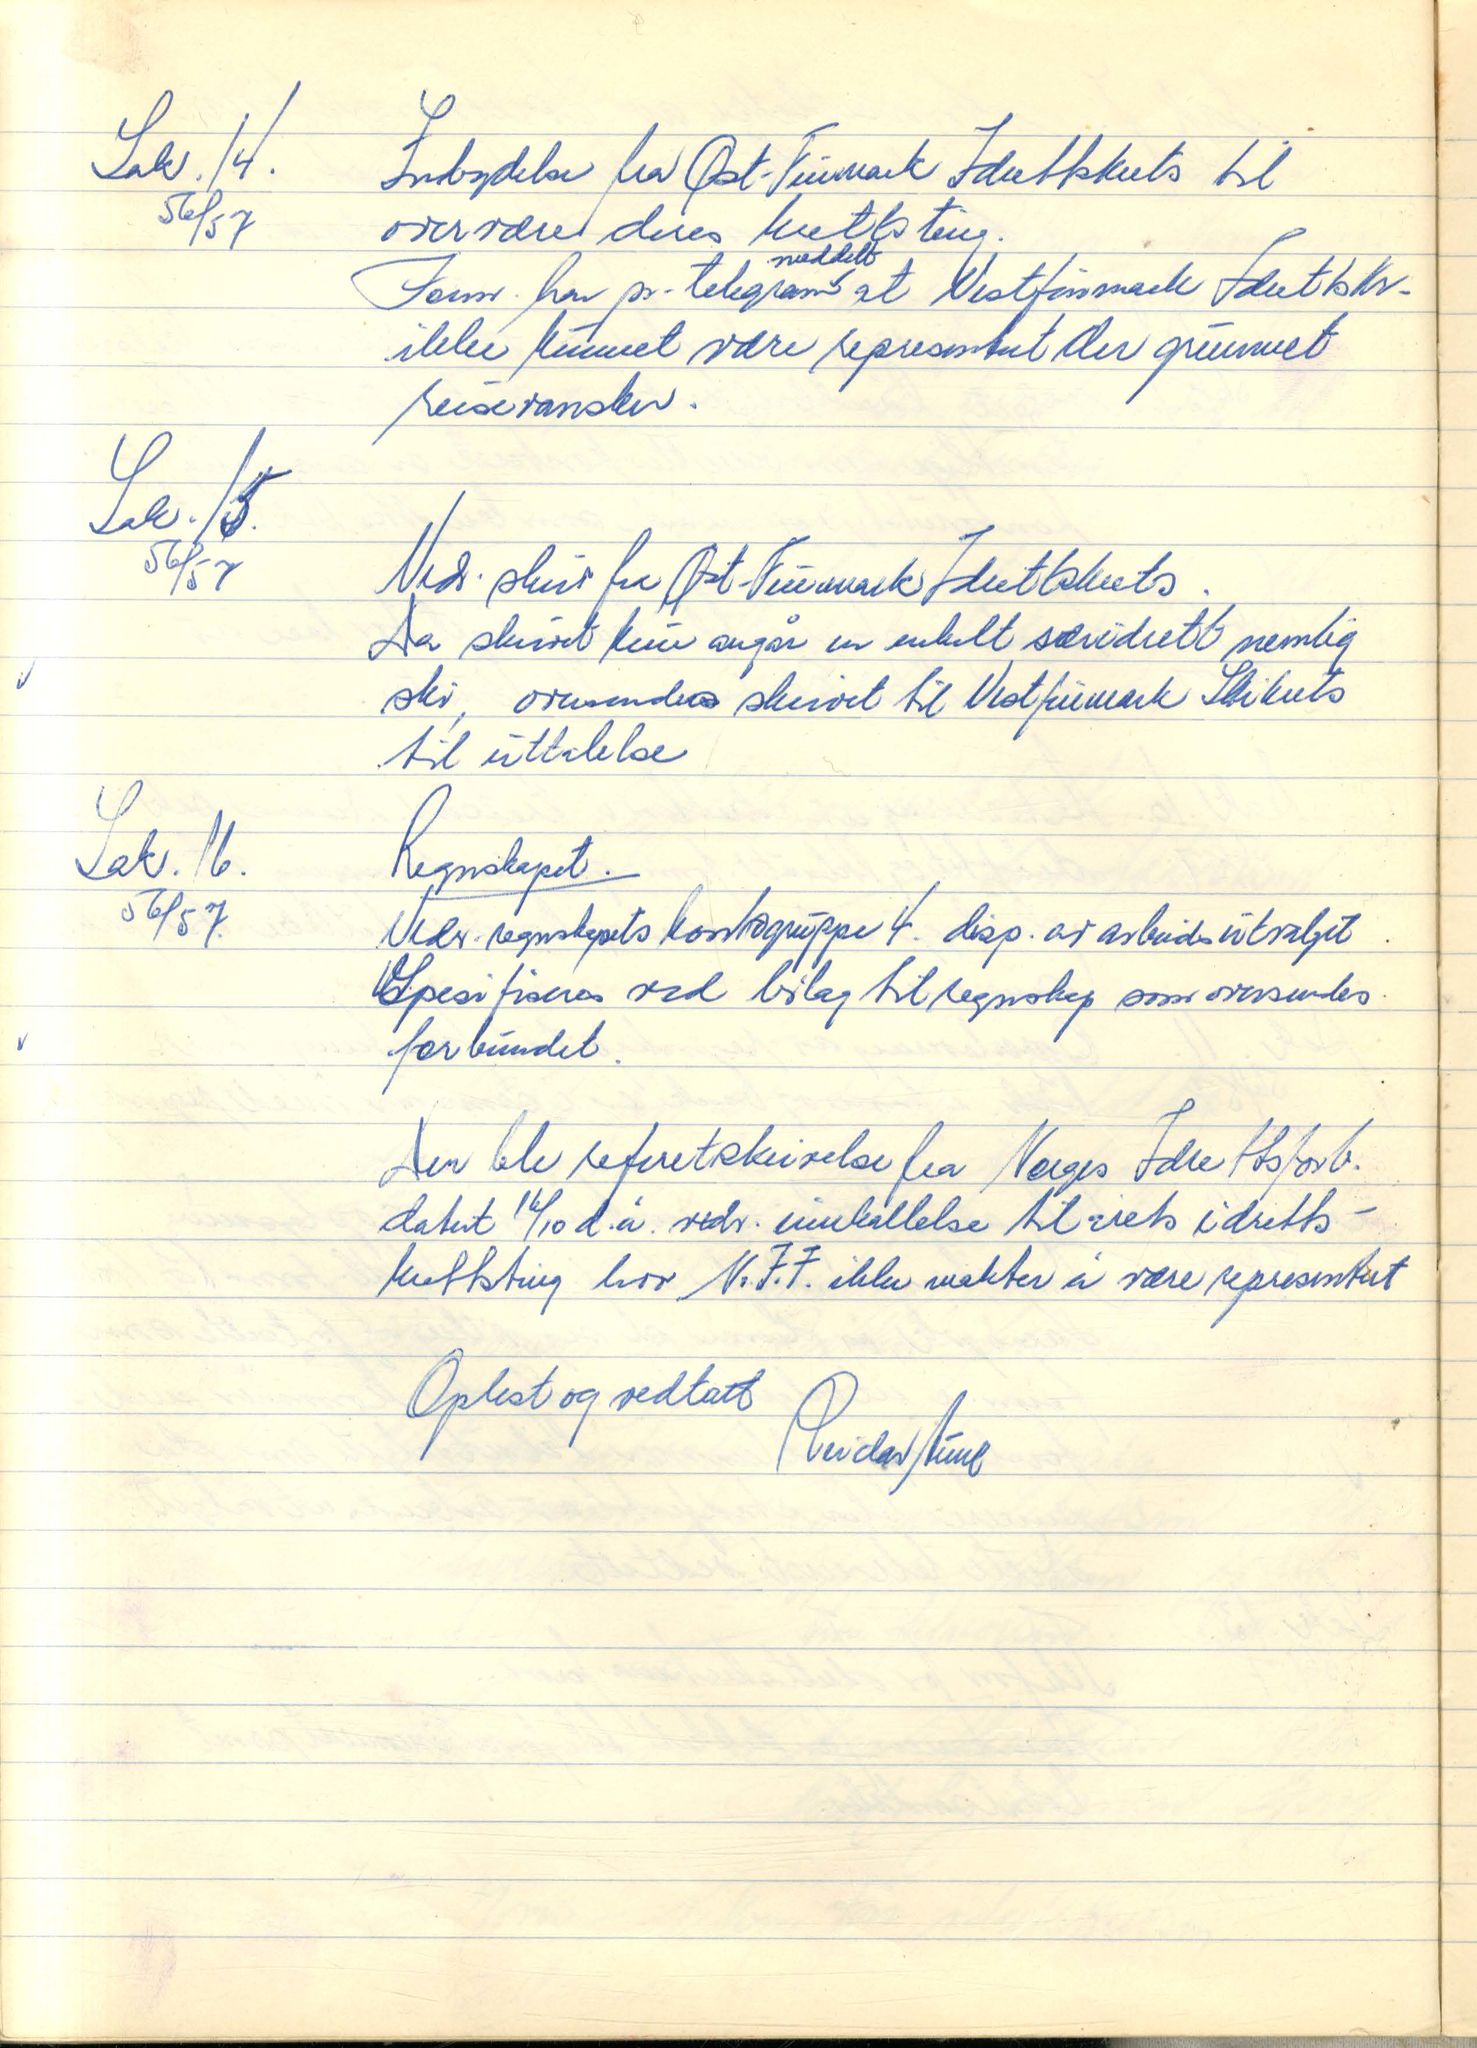 Sak. 14.
56/57
Inbydelse fra Øst-Finmark Idrettskrets til
overvære deres kretsting.
Form. har pr. telegram meddelt at Vestfinmark Idrettskr.
ikke kunnet være representert der grunnet
reisevansker.
Sak. 15.
56/57
Vedr. skriv fra Øst-Finmark Idrettskrets.
Da skrivet kun angår en enkelt særidrett nemlig
ski, oversendes skrivet til Vestfinmark Skikrets
til uttalelse
Sak. 16.
56/57.
Regnskapet.
Vedr. regnskapets kontogruppe 4. disp. av arbeidsutvalget.
Spesifiseres ved bilag til regnskap som oversendes
forbundet.
Der ble referert skrivelse fra Norges Idrettsforb.
datert 16/10 d.å. vedr. innkallelse til årets idretts-
kretsting hvor N.I.F. ikke makter å være representert
Oplest og vedtatt
Reidar